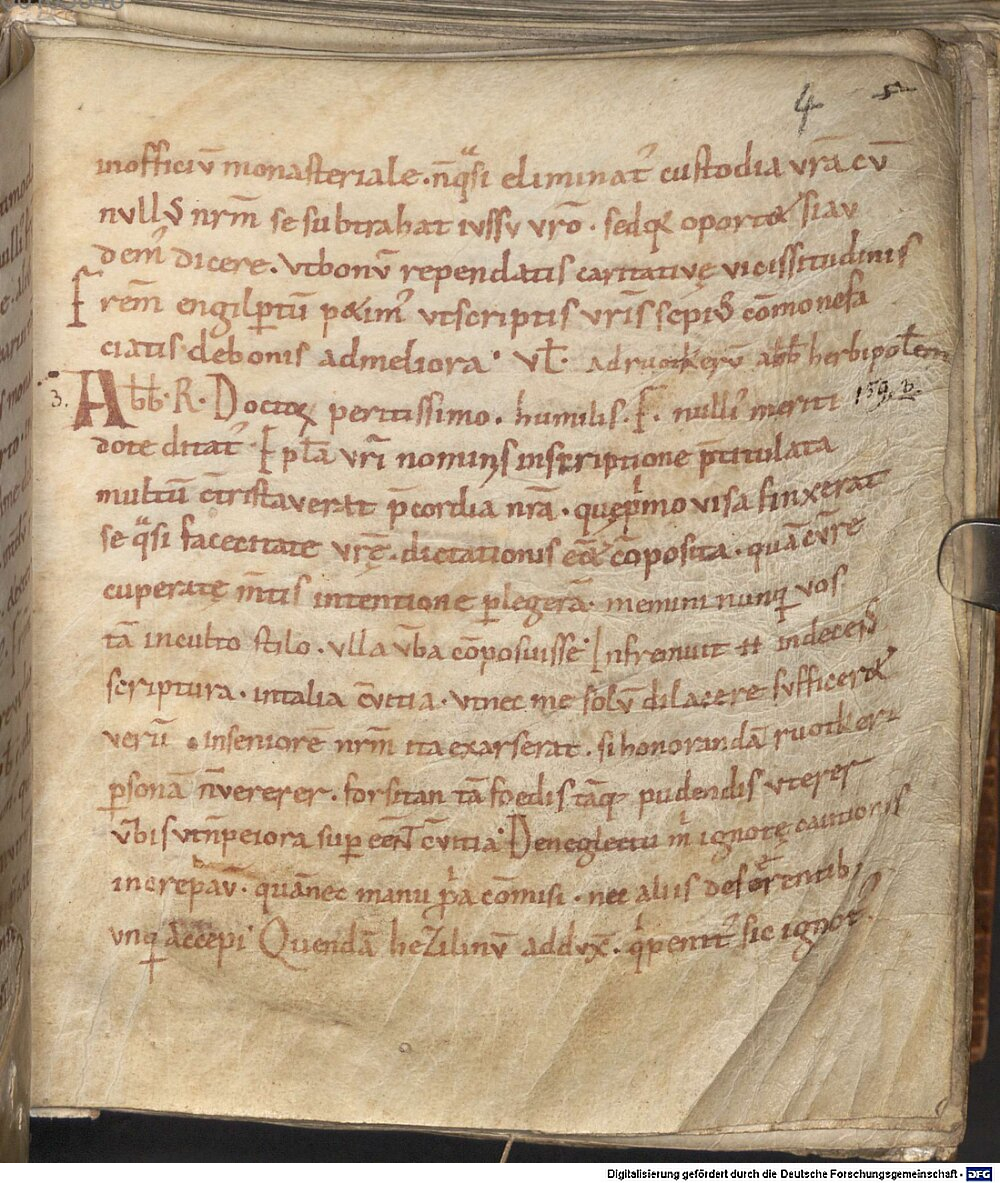 4 5
inofficiū monasteriale. n̄qᵃsi eliminat᷑ custodia vr̄a cū
nullꝰ nr̄m se subtrahat iussu vr̄o. sedqꝫ oportet si au
dem᷑ dicere. vtbonū rependatis caritativę vicissitudinis
Frem̄ engilꝑtū petim᷑ utscriptis vr̄is sepiꝰ cōmonefa
ciatis debonis admeliora. Vł. ad ruotkerū abb̄ herbipolēm
3. Abb̄. R. Doctoꝝ peritissimo. humilis. F. nulli᷑ meriti 159. b.
dote ditat᷑ Ep̄la vr̄i nominis inscriptione p̄titulata
multū cōtristaverat p̄cordia nr̄a. quępͥmo visa finxerat
se qᵃsi facecitate vr̄ę. dictationis eē cōposita. quā cū re
cuperatę m̄tis intentione ꝑlegerā. memini nunqͣ vos
tā inculto stilo. ulla v̄ba cōposuisse Infremuit et indecēs
scriptura. intalia cv̄itia. utnec me solū dilacere sufficeret
verū. inseniorē nr̄m ita exarserat. si honorandā ruotkeri
ꝑsonā n̄vererer. forsitan tā foedis tāqꝫ pudendis uterer
v̄bis utn̄peiora suꝑ cēn̄t cv̄itia Deneglectu m̄ ignotę cautionis
increpavit. quānec manu ꝓpͥa cōmisi. nec aliis deferentibꝫ
unqͣ accepi Quendā heZilinū adduxit. qͥpenit᷑ sic ignot᷑
Digitalisierung gefördert durch die Deutsche Forschungsgemeinschaft - DFG